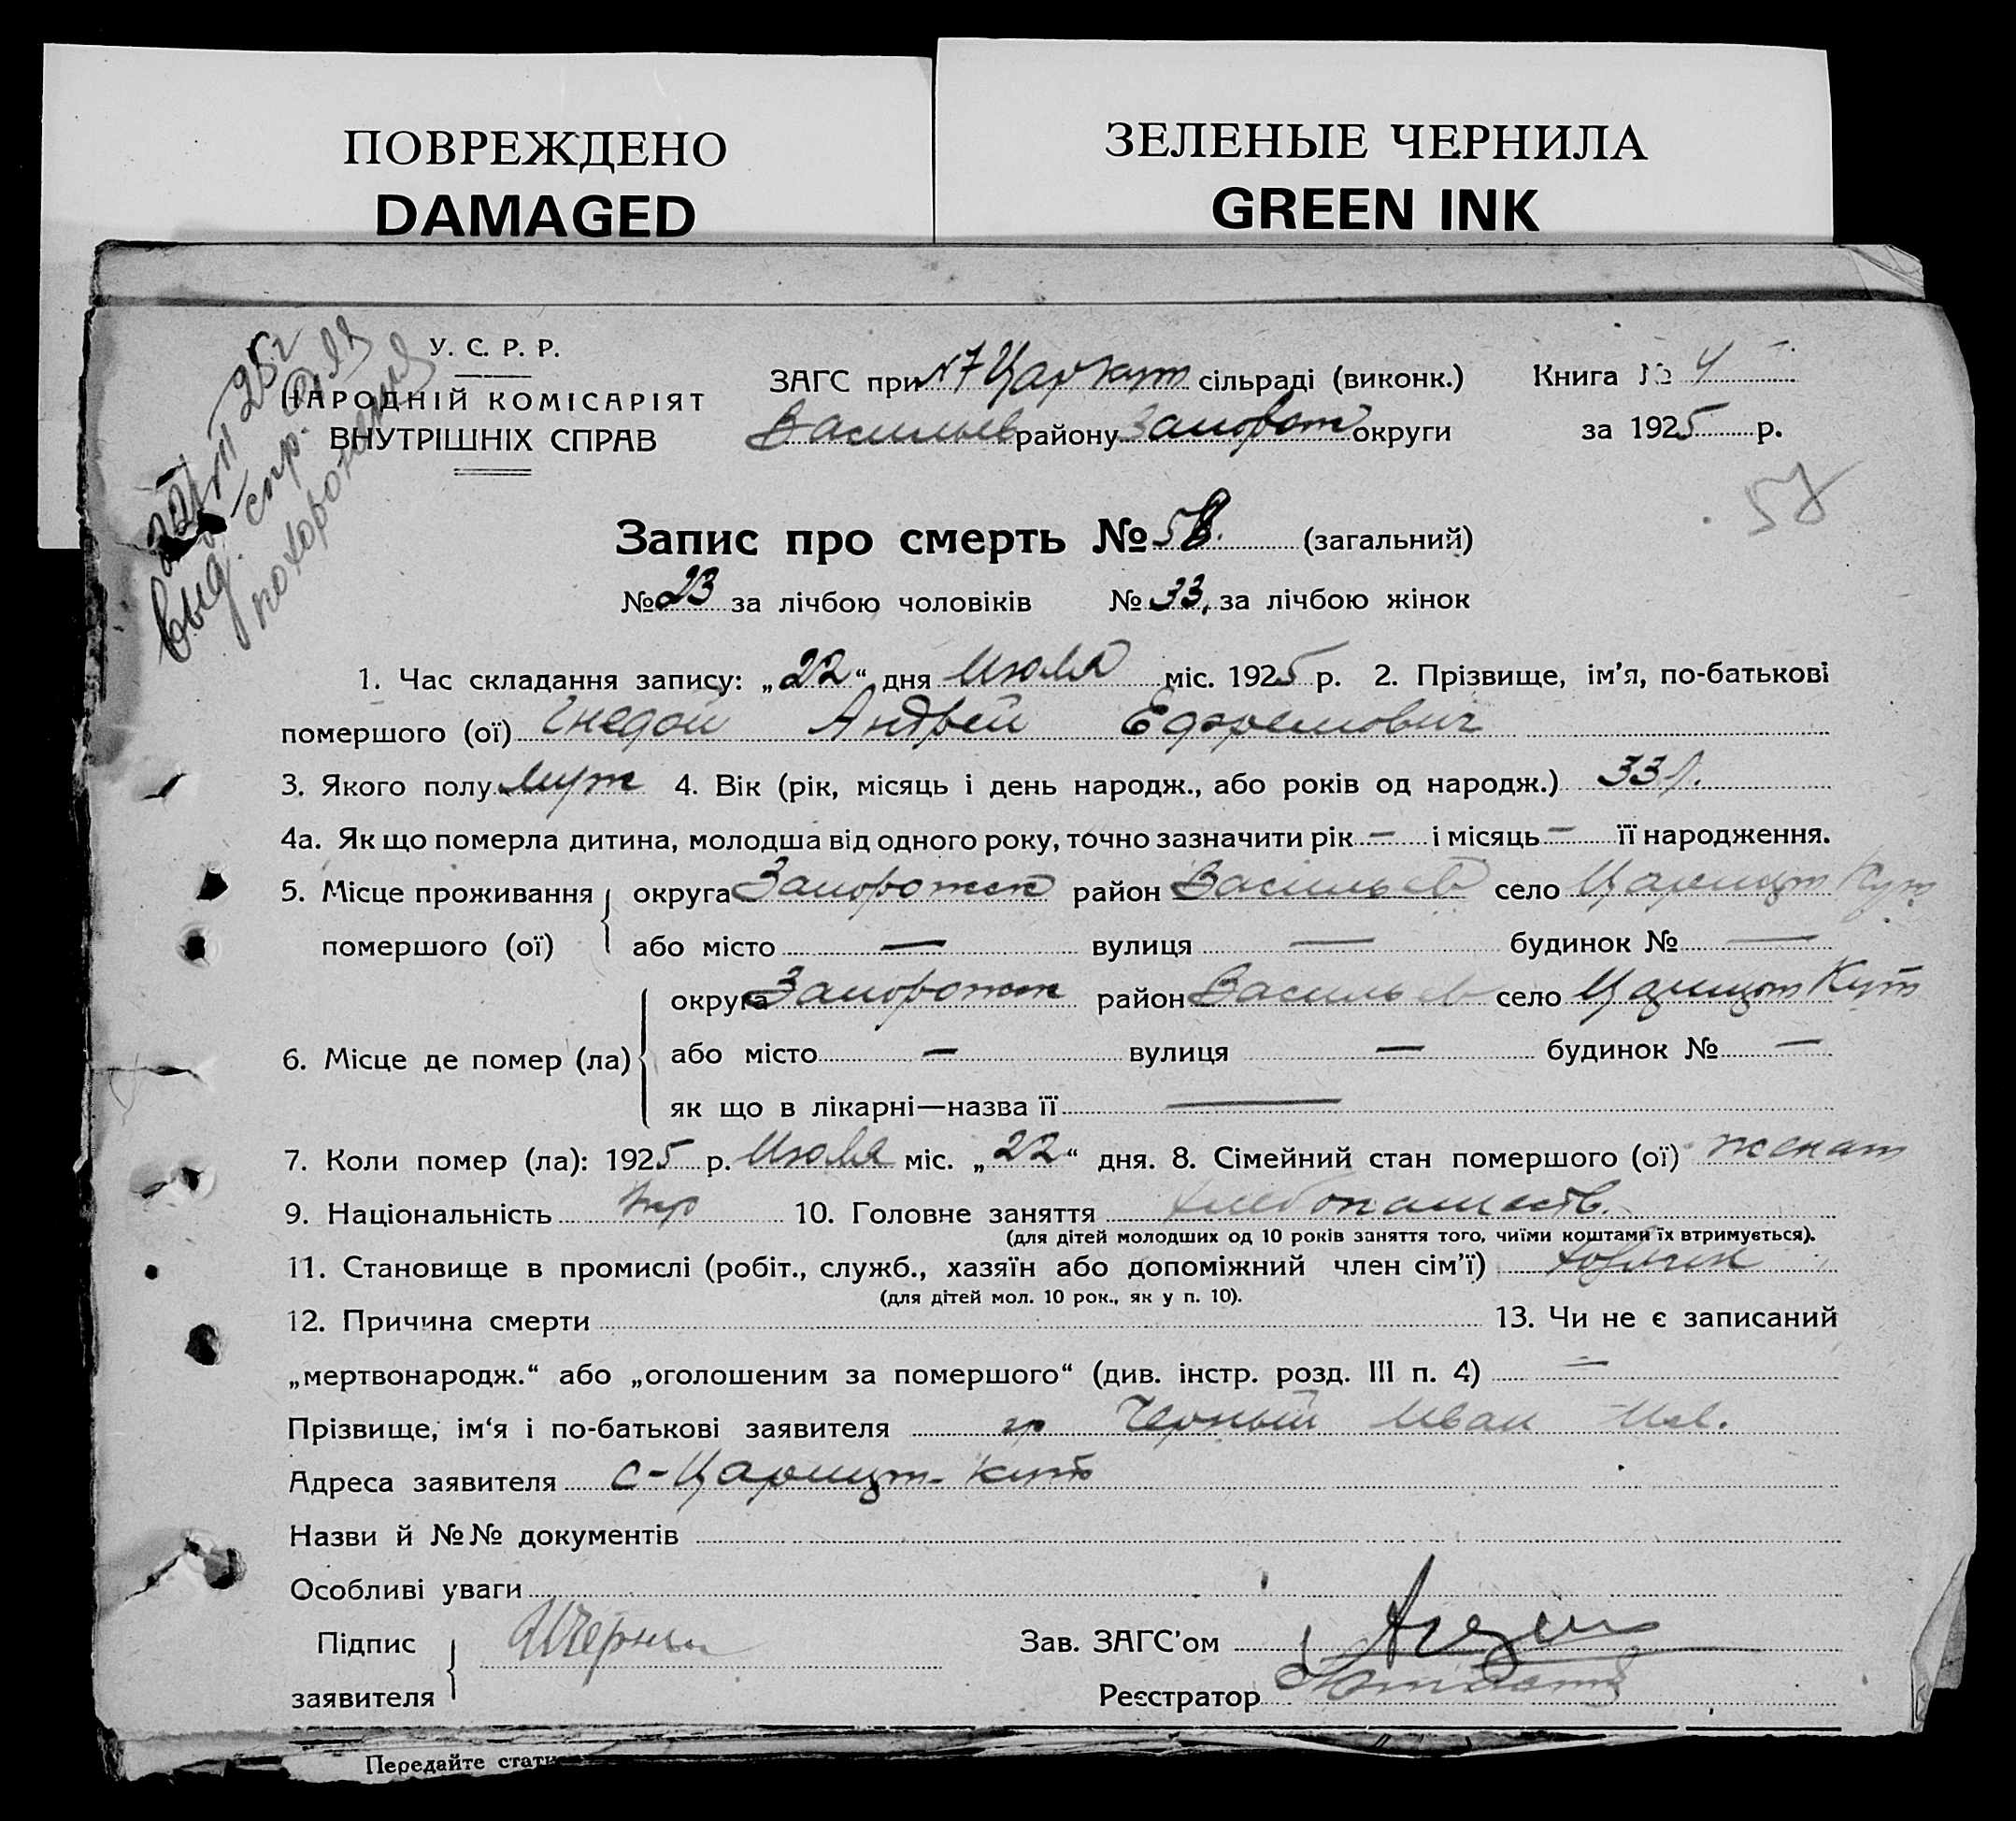 ПОВРЕЖДЕНО
DAMAGED
ЗЕЛЕНЫЕ ЧЕРНИЛА
GREEN INK
22/VII 25 г
выд. спр. для
похоронения
У. С. Р. Р.
НАРОДНІЙ КОМІСАРІЯТ
ВНУТРІШНІХ СПРАВ
ЗАГС при №7 Цар Кут сільраді (виконк.) Книга № 4
Васильев району Запорож округи за 1925 р.
58
Запис про смерть № 58. (загальний)
№ 23 за лічбою чоловіків № 33, за лічбою жінок
1. Час складання запису: „22“ дня Июля міс. 1925 р. 2. Прізвище, ім’я, по-батькові
помершого (ої) Гнедой Андрей Ефремович
3. Якого полу муж 4. Вік (рік, місяць і день народж., або років од народж.) 33 л.
4а. Як що померла дитина, молодша від одного року, точно зазначити рік — і місяць — її народження.
5. Місце проживання помершого (ої) округа Запорожск район Васильев село Царицын Кут
або місто — вулиця — будинок № —
6. Місце де помер (ла) округа Запорожск район Васильев село Царицын Кут
або місто — вулиця — будинок № —
як що в лікарні—назва її —
7. Коли помер (ла): 1925 р. Июля міс. „22“ дня. 8. Сімейний стан помершого (ої) женат
9. Національність укр 10. Головне заняття хлебопашеств.
(для дітей молодших од 10 років заняття того, чиїми коштами їх втримується).
11. Становище в промислі (робіт., служб., хазяїн або допоміжний член сім’ї)
(для дітей мол. 10 рок., як у п. 10).
12. Причина смерти 13. Чи не є записаний
„мертвонародж.“ або „оголошеним за помершого“ (див. інстр. розд. III п. 4) —
Прізвище, ім‘я і по-батькові заявителя гр Черный Иван
Адреса заявителя с-Царицын-Кут
Назви й №№ документів
Особливі уваги
Підпис заявителя ИЧерный
Зав. ЗАГС’ом
Реєстратор
Передайте стати